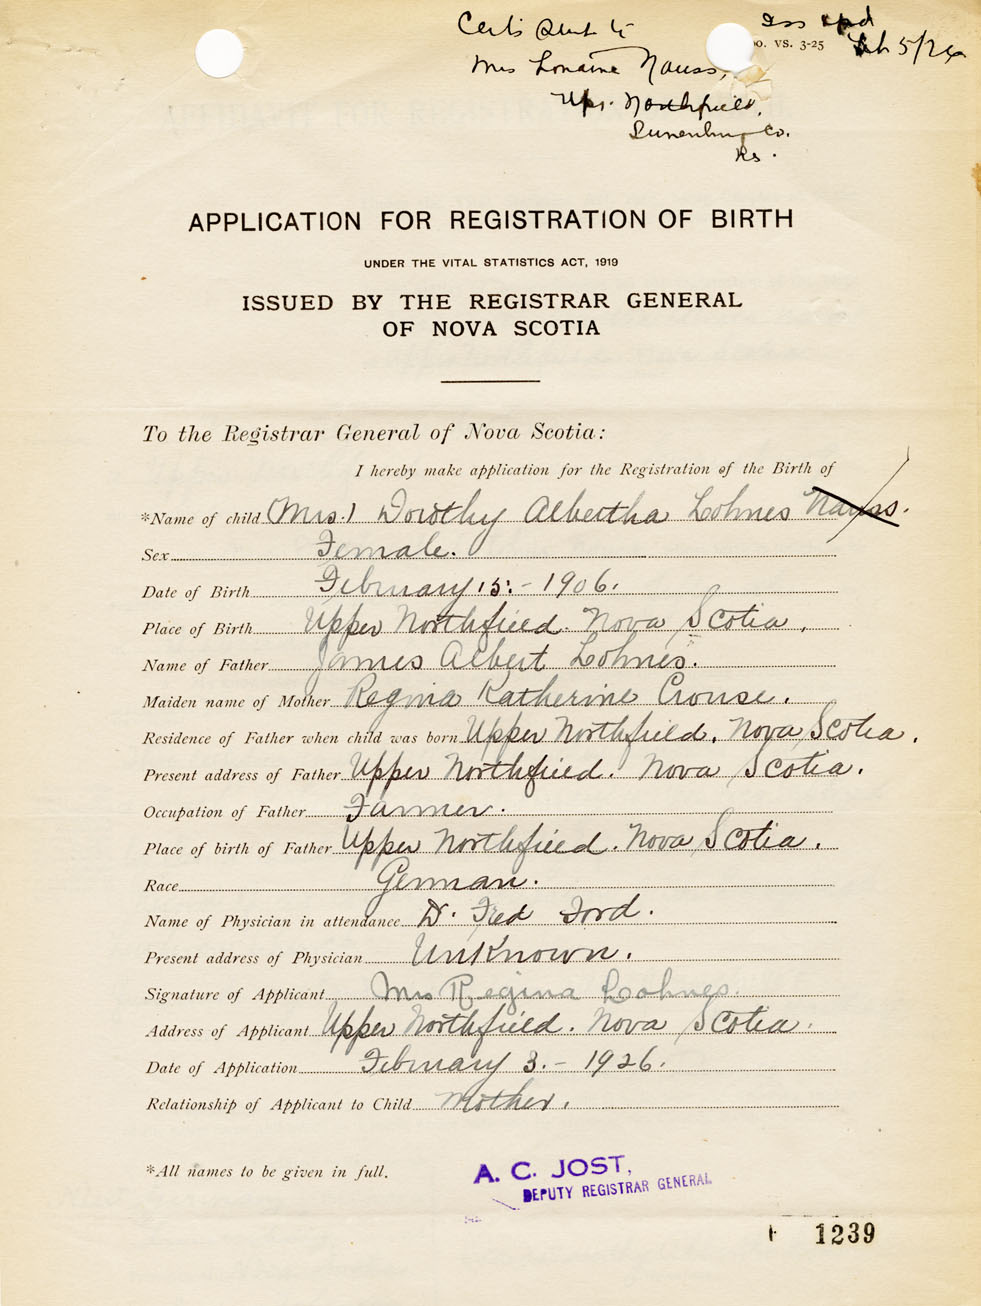 Certi Sent to
Iss upd
Mrs Loraine Nauss,
00. vs. 3-25 Feb 5/26
Upr. Northfield,
Lunenburg Co.
Ns.
APPLICATION FOR REGISTRATION OF BIRTH
UNDER THE VITAL STATISTICS ACT, 1919
ISSUED BY THE REGISTRAR GENERAL
OF NOVA SCOTIA
To the Registrar General of Nova Scotia:
I hereby make application for the Registration of the Birth of
*Name of child (Mrs.) Dorothy Albertha Lohnes Nauss.
Sex Female.
Date of Birth February 15. - 1906.
Place of Birth Upper Northfield. Nova Scotia.
Name of Father James Albert Lohnes.
Maiden name of Mother Regina Katherine Crouse.
Residence of Father when child was born Upper Northfield. Nova Scotia.
Present address of Father Upper Northfield. Nova Scotia.
Occupation of Father Farmer.
Place of birth of Father Upper Northfield. Nova Scotia.
Race German.
Name of Physician in attendance D. Fred Ford.
Present address of Physician Unknown.
Signature of Applicant Mrs Regina Lohnes.
Address of Applicant Upper Northfield. Nova Scotia.
Date of Application February 3. - 1926.
Relationship of Applicant to Child Mother.
*All names to be given in full.
A. C. JOST,
DEPUTY REGISTRAR GENERAL
1239